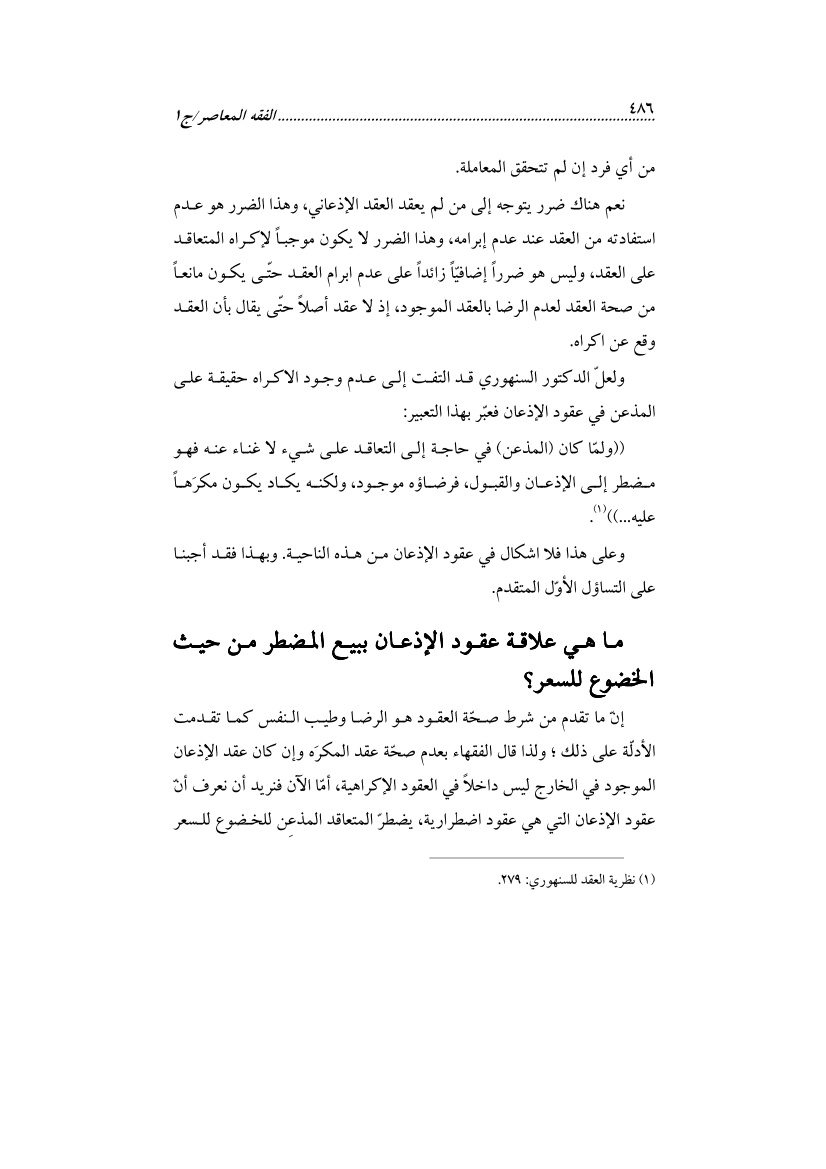 ٤٨٦ ........................................................................................................ الفقه المعاصر/ج١
من أي فرد إن لم تتحقق المعاملة.
نعم هناك ضرر يتوجه إلى من لم يعقد العقد الإذعاني، وهذا الضرر هو عـدم
استفادته من العقد عند عدم إبرامه، وهذا الضرر لا يكون موجبـاً لإكـراه المتعاقـد
على العقد، وليس هو ضرراً إضافيّاً زائداً على عدم ابرام العقـد حتّـى يكـون مانعـاً
من صحة العقد لعدم الرضا بالعقد الموجود، إذ لا عقد أصلاً حتّى يقال بأن العقـد
وقع عن اكراه.
ولعلّ الدكتور السنهوري قـد التفـت إلـى عـدم وجـود الاكـراه حقيقـة علـى
المذعن في عقود الإذعان فعبّر بهذا التعبير:
((ولمّا كان (المذعن) في حاجـة إلـى التعاقـد علـى شـيء لا غنـاء عنـه فهـو
مـضطر إلـى الإذعـان والقبـول، فرضـاؤه موجـود، ولكنـه يكـاد يكـون مكرَهـاً
عليه...))(١).
وعلى هذا فلا اشكال في عقود الإذعان مـن هـذه الناحيـة. وبهـذا فقـد أجبنـا
على التساؤل الأوّل المتقدم.
مـا هـي علاقـة عقـود الإذعـان ببيـع المـضطر مـن حيـث
الخضوع للسعر؟
إنّ ما تقدم من شرط صـحّة العقـود هـو الرضـا وطيـب الـنفس كمـا تقـدمت
الأدلّة على ذلك ؛ ولذا قال الفقهاء بعدم صحّة عقد المكرَه وإن كان عقد الإذعان
الموجود في الخارج ليس داخلاً في العقود الإكراهية، أمّا الآن فنريد أن نعرف أنّ
عقود الإذعان التي هي عقود اضطرارية، يضطرّ المتعاقد المذعِن للخـضوع للـسعر
(١) نظرية العقد للسنهوري: ٢٧٩.